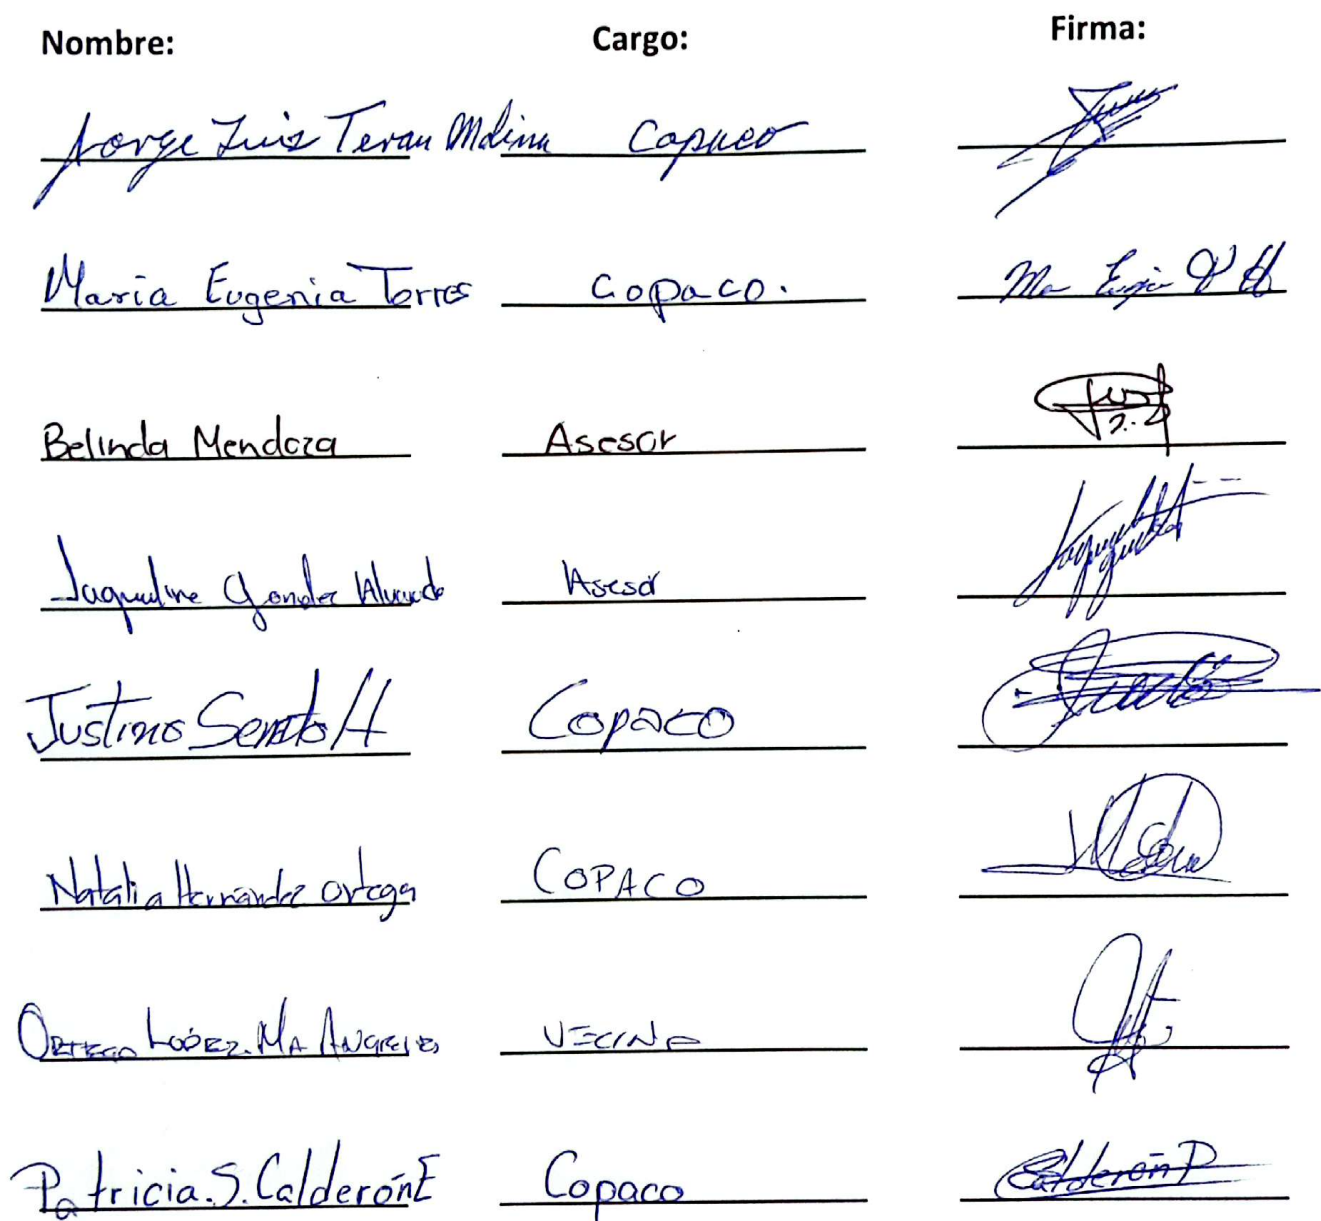 Nombre: Cargo: Firma:
Jorge Luis Teran Molina Copaco
Maria Eugenia Torres Copaco. Ma Eugenia
Belinda Mendoza Asesor
Jaqueline Gonzlez Alvarado Asesor
Justino H Copaco
Natalia Hernández Ortega COPACO
ORTEGA LOPEZ. MA ANGELES VECINA
Patricia.S.Calderón E Copaco Calderón P